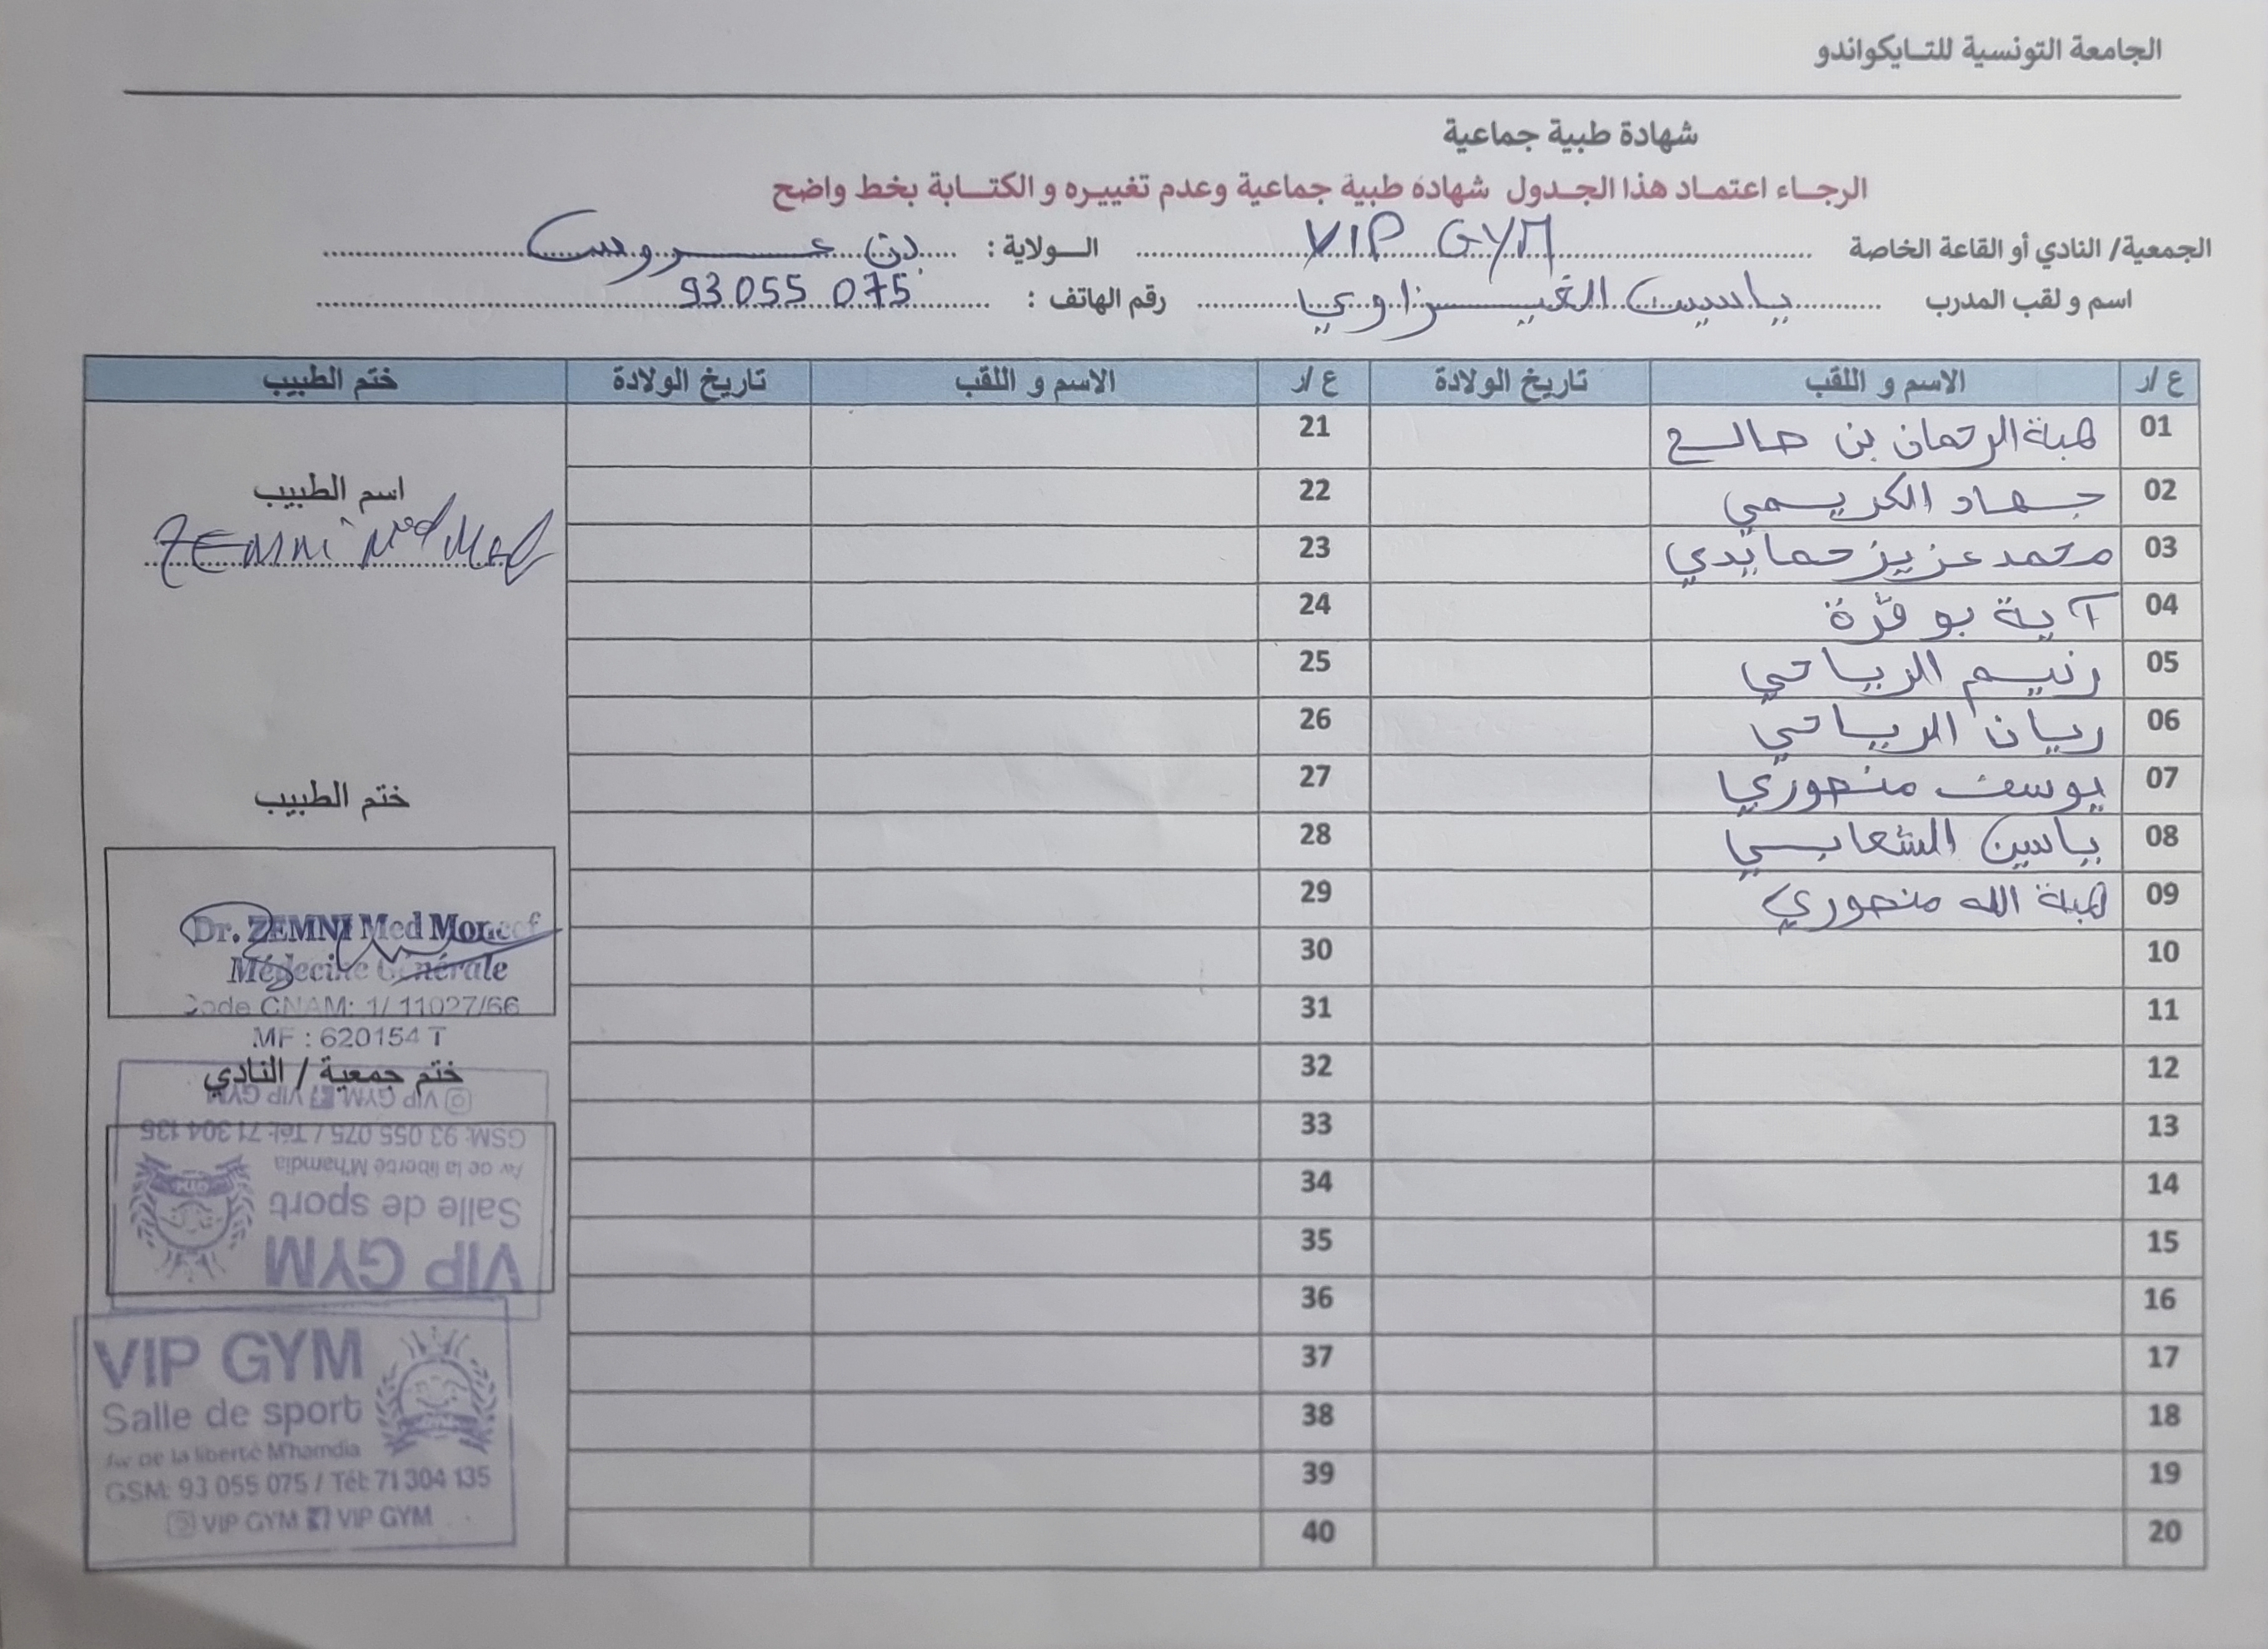 الجامعة التونسية للتايكواندو
شهادة طبية جماعية
الرجاء اعتماد هذا الجدول شهادة طبية جماعية وعدم تغييره و الكتابة بخط واضح
الجمعية/ النادي أو القاعة الخاصة VIP GYM الولاية : بن عروس
اسم و لقب المدرب ياسين الغيزاوي رقم الهاتف : 93 055 075
ع /ر الاسم و اللقب تاريخ الولادة ع /ر الاسم و اللقب تاريخ الولادة ختم الطبيب
01 هبة الرحمان بن صالح 21
02 جهاد الكريمي 22
03 محمد عزيز حمايدي 23
04 آية بوقرة 24
05 رنيم الرياحي 25
06 ريان الرياحي 26
07 يوسف منصوري 27
08 ياسين الشعابي 28
09 هبة الله منصوري 29
10 30
11 31
12 32
13 33
14 34
15 35
16 36
17 37
18 38
19 39
20 40
اسم الطبيب
ZEMNI Med
ختم الطبيب
Dr. ZEMNI Med Moncef
Médecine Générale
Code CNAM: 1/ 11027/66
MF : 620154 T
ختم جمعية / النادي
VIP GYM
Salle de sport
Av de la liberté M'hamdia
GSM: 93 055 075 / Tél: 71 304 135
VIP GYM VIP GYM
VIP GYM
Salle de sport
Av de la liberté M'hamdia
GSM: 93 055 075 / Tél: 71 304 135
VIP GYM VIP GYM